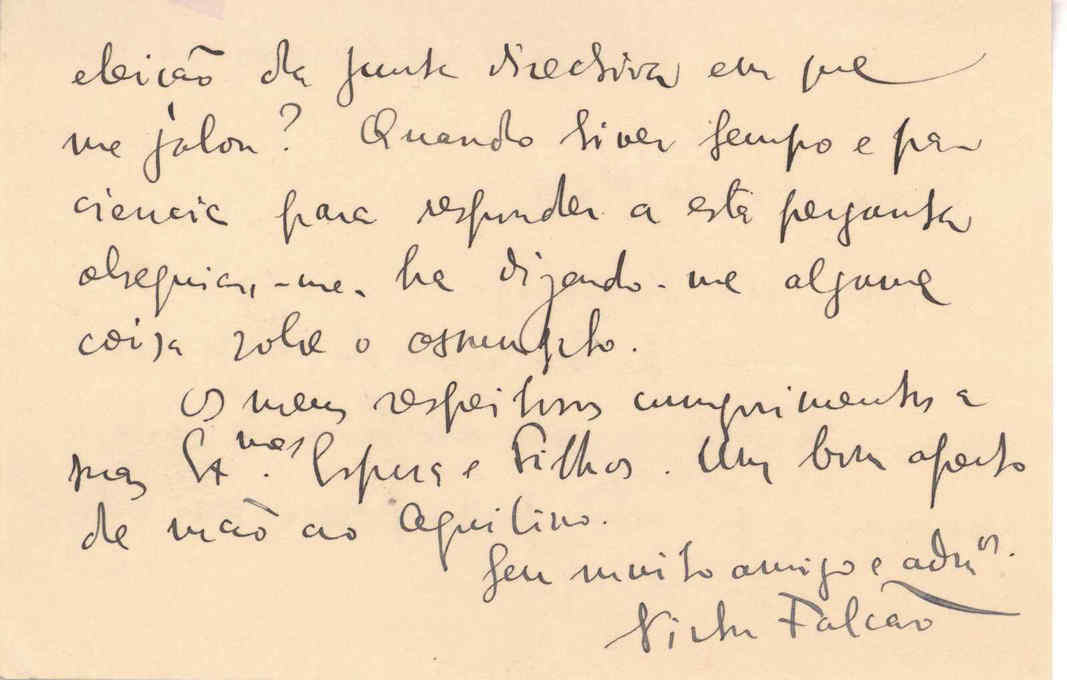 eleição da junta directiva em que
me falou? Quando tiver tempo e pa-
ciencia para responder a esta pergunta
obsequiar-me-ha dizendo-me alguma
coisa sobre o assumpto.
Os meus respeitosos cumprimentos a
sua Ex.mas Esposa e Filhos. Um bom aperto
de mão ao Aquilino.
Seu muito amigo e adm.or
Victor Falcão